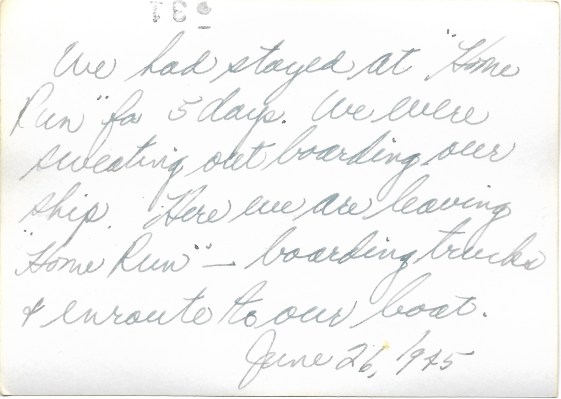 We had stayed at "Home
Run" for 5 days. We were
sweating out boarding our
ship. Here we are leaving
"Home Run" — boarding trucks
& enroute to our boat.
June 26, 1945